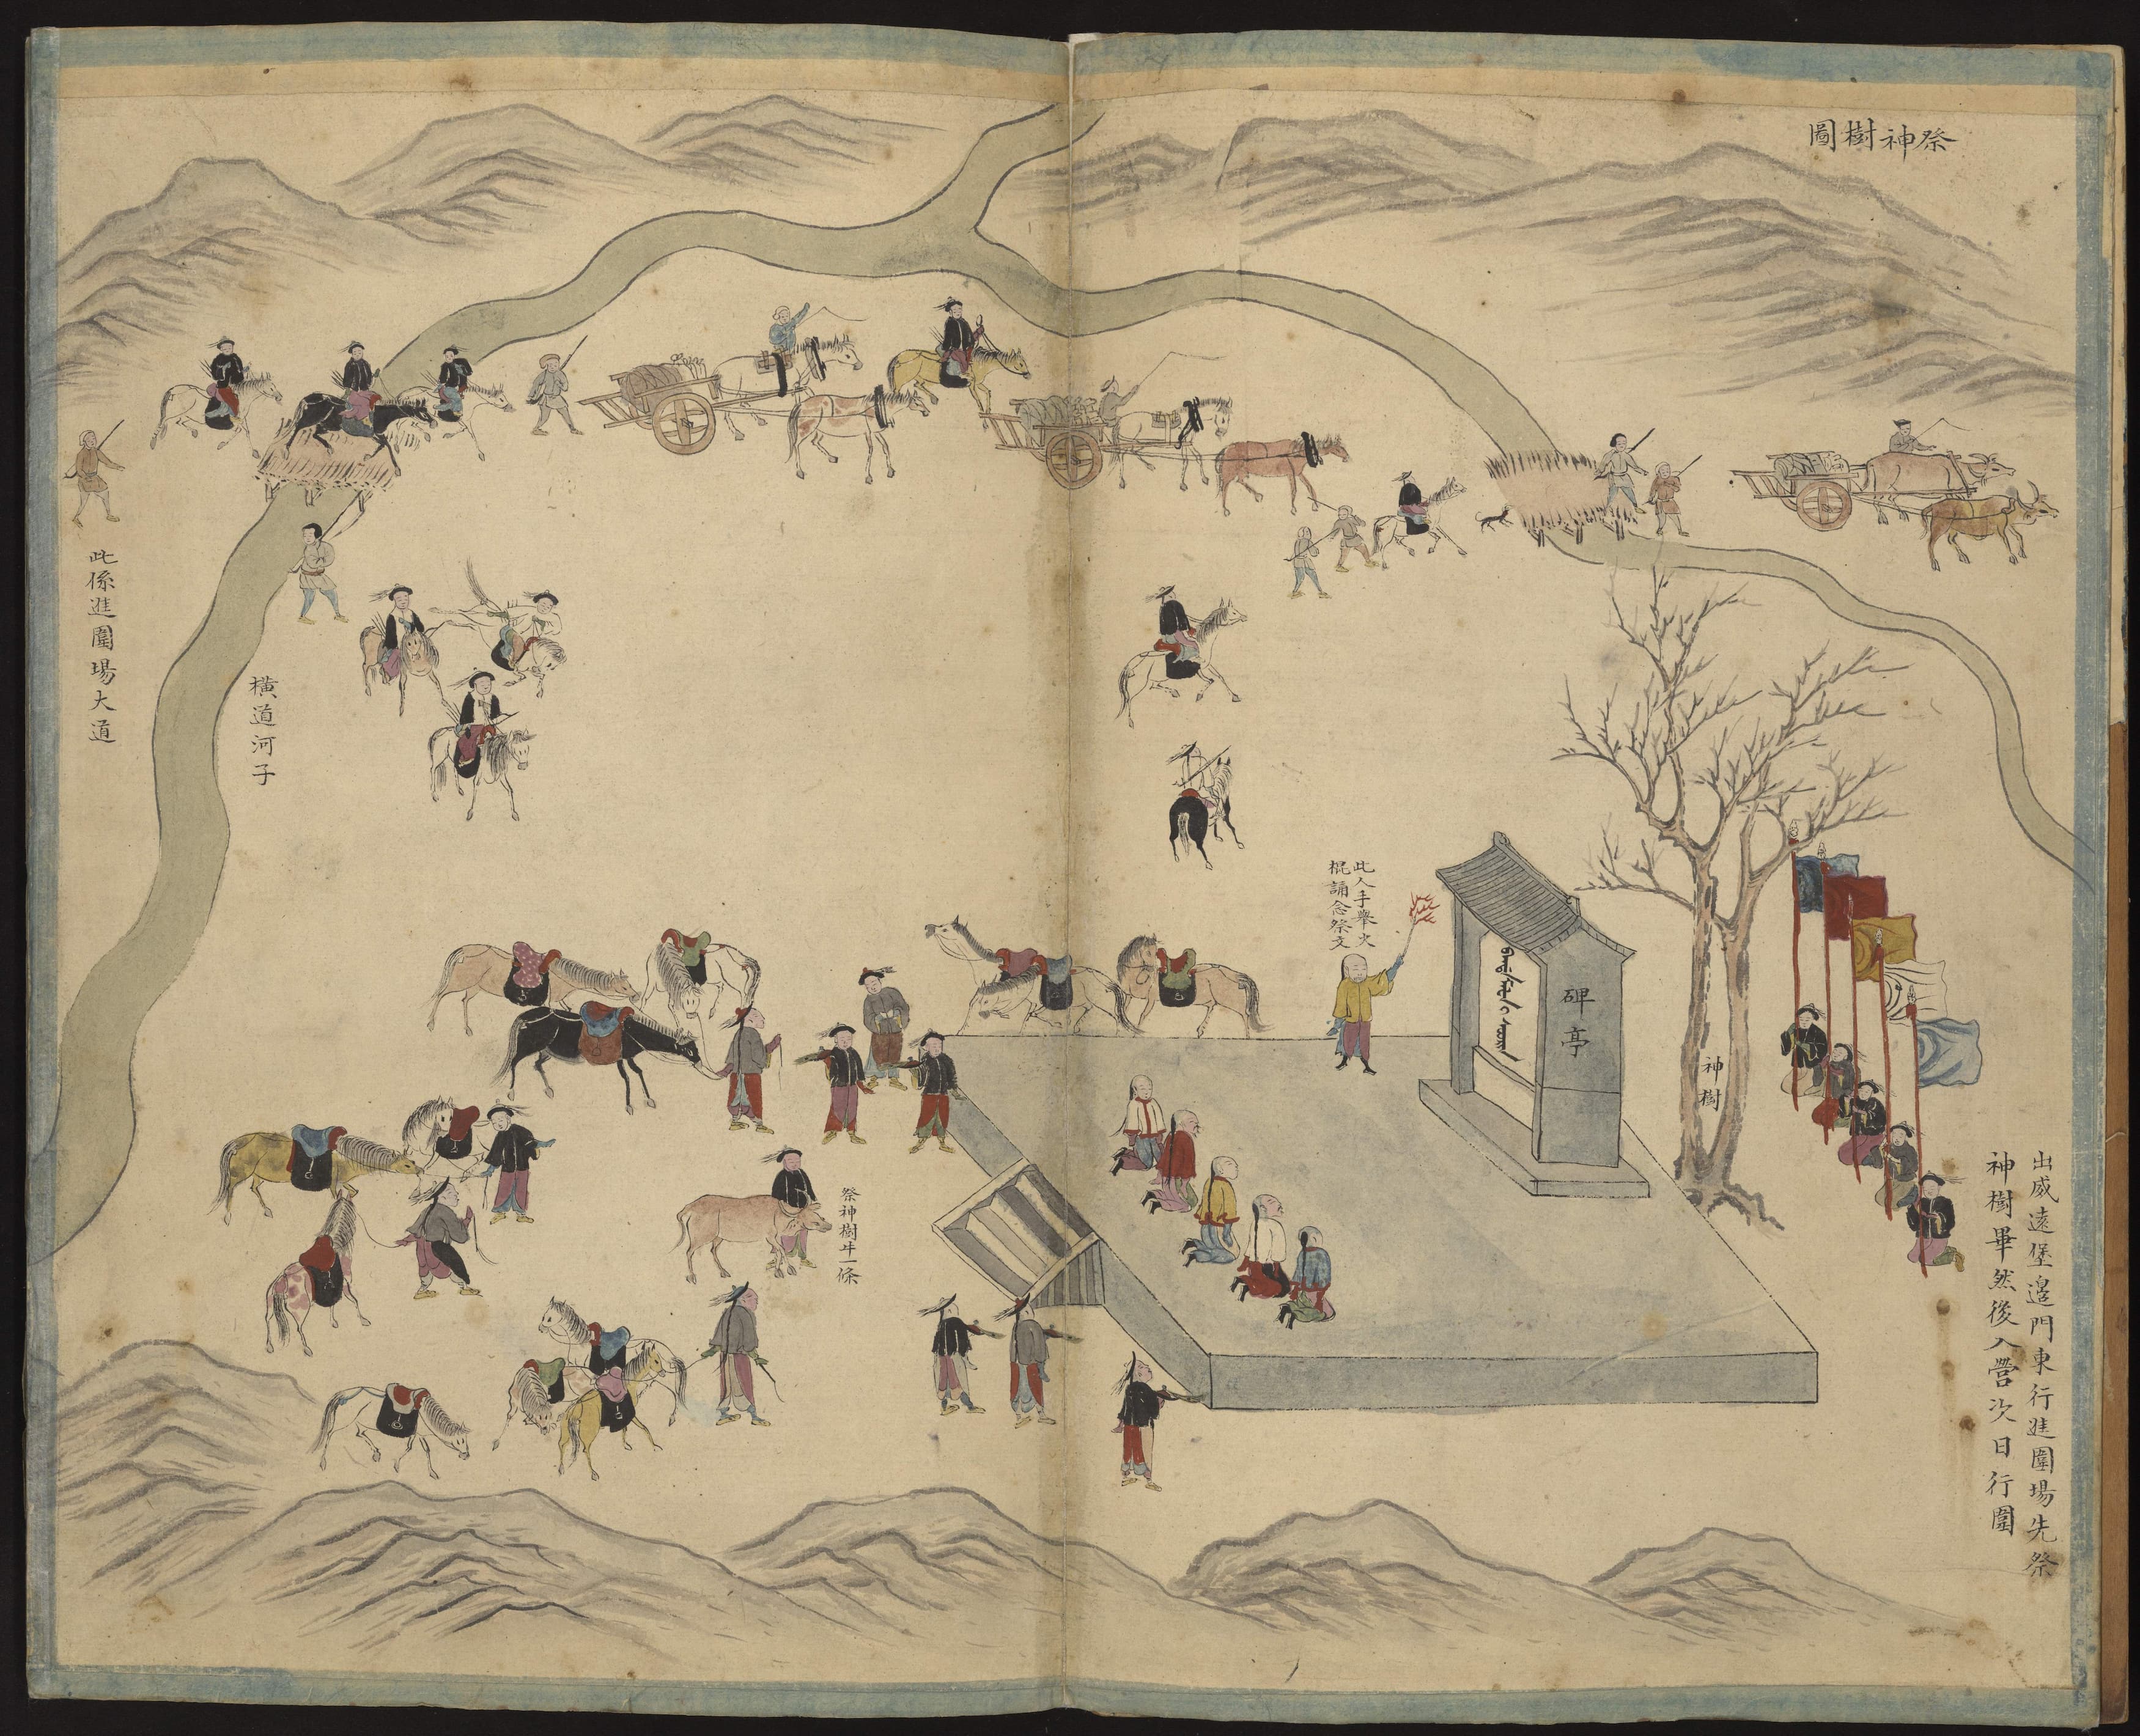 祭神樹圖
出威遠堡邉門東行進圍場先祭
神樹畢然後入營次日行圍
神樹
碑亭
此人手舉火
棍誦念祭文
祭神樹牛一條
橫道河子
此係進圍場大道